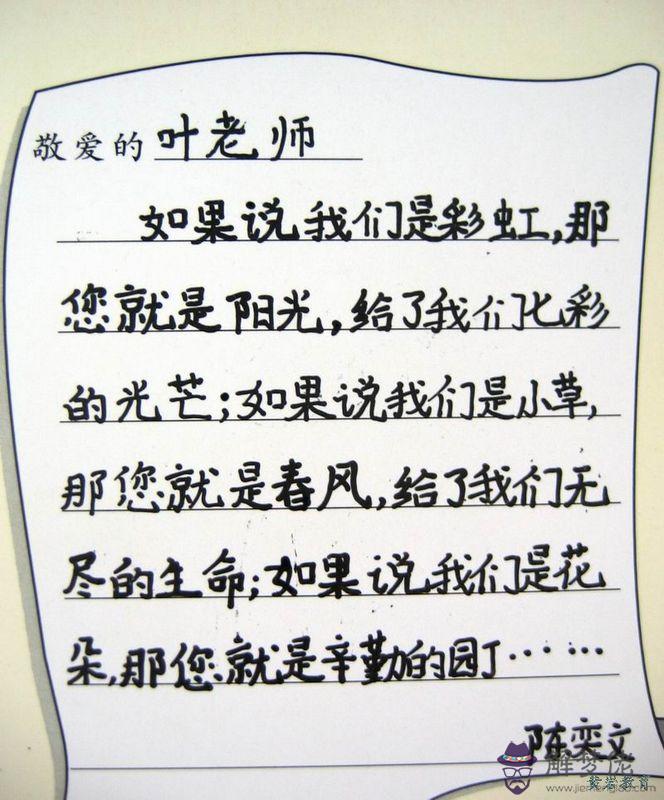 敬爱的 叶老师
如果说我们是彩虹,那
您就是阳光,给了我们七彩
的光芒;如果说我们是小草,
那您就是春风,给了我们无
尽的生命;如果说我们是花
朵,那您就是辛勤的园丁……
陈奕文
解梦佬
紫岩教育
www.jiemenglao.com